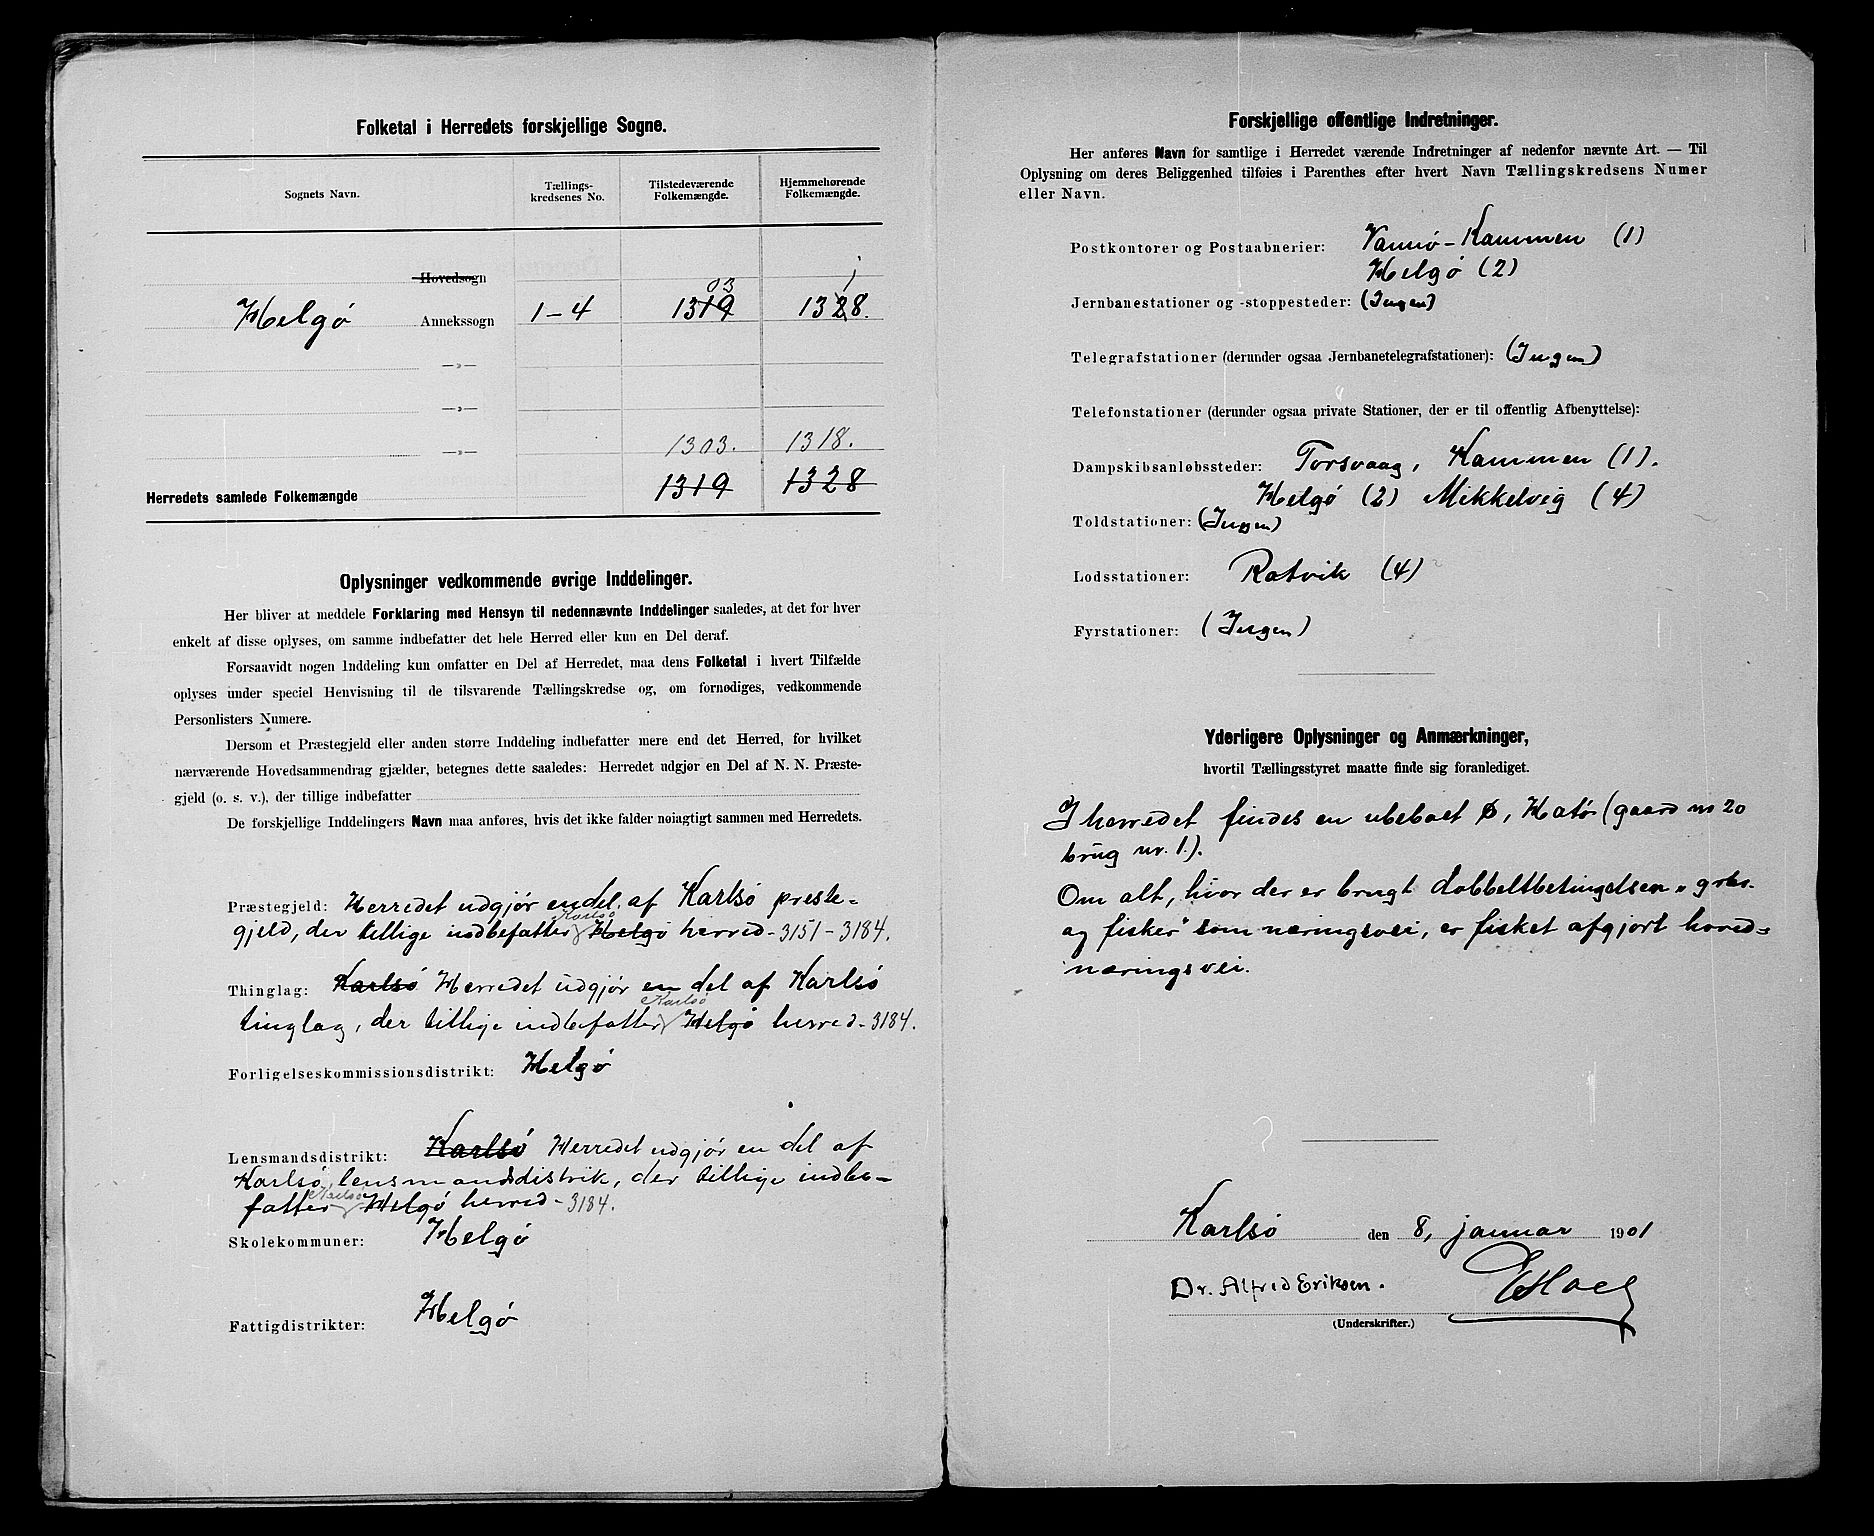 Folketal i Herredets forskjellige Sogne.
Sognets Navn.
Tællings-
kredsenes No.
Tilstedeværende
Folkemængde.
Hjemmehørende
Folkemængde.
Hovedsogn
03 1
Helgø Annekssogn 1-4 1319 1328.
—»—
—»—
—»— 1303. 1318.
Herredets samlede Folkemængde 1319 1328
Oplysninger vedkommende øvrige Inddelinger.
Her bliver at meddele Forklaring med Hensyn til nedennævnte Inddelinger saaledes, at det for hver
enkelt af disse oplyses, om samme indbefatter det hele Herred eller kun en Del deraf.
Forsaavidt nogen Inddeling kun omfatter en Del af Herredet, maa dens Folketal i hvert Tilfælde
oplyses under speciel Henvisning til de tilsvarende Tællingskredse og, om fornødiges, vedkommende
Personlisters Numere.
Dersom et Præstegjeld eller anden større Inddeling indbefatter mere end det Herred, for hvilket
nærværende Hovedsammendrag gjælder, betegnes dette saaledes: Herredet udgjør en Del af N. N. Præste-
gjeld (o. s. v.), der tillige indbefatter
De forskjellige Inddelingers Navn maa anføres, hvis det ikke falder nøiagtigt sammen med Herredets.
Præstegjeld: Herredet udgjør en del af Karlsø preste-
Karlsø
gjeld, der tillige indbefatter Helgø herred - 3151 - 3184.
Thinglag: Karlsø Herredet udgjør en del af Karlsø
Karlsø
tinglag, der tillige indbefatter Helgø herred - 3184.
Forligelseskommissionsdistrikt: Helgø
Lensmandsdistrikt: Karlsø Herredet udgjør en del af
Karlsø lensmandsdistrik, der tillige indbe-
Karlsø
fatter Helgø herred - 3184.
Skolekommuner: Helgø
Fattigdistrikter: Helgø
Forskjellige offentlige Indretninger.
Her anføres Navn for samtlige i Herredet værende Indretninger af nedenfor nævnte Art. — Til
Oplysning om deres Beliggenhed tilføies i Parenthes efter hvert Navn Tællingskredsens Numer
eller Navn.
Postkontorer og Postaabnerier: Vannø-Kammen (1)
Helgø (2)
Jernbanestationer og -stoppesteder: (Ingen)
Telegrafstationer (derunder ogsaa Jernbanetelegrafstationer): (Ingen)
Telefonstationer (derunder ogsaa private Stationer, der er til offentlig Afbenyttelse):
Dampskibsanløbssteder: Torsvaag, Kammen (1).
Helgø (2) Mikkelvig (4)
Toldstationer: (Ingen)
Lodsstationer: Rotvik (4)
Fyrstationer: (Ingen)
Yderligere Oplysninger og Anmærkninger,
hvortil Tællingsstyret maatte finde sig foranlediget.
I herredet findes en ubeboet ø, Kotø (gaard nr 20
brug nr. 1.).
Om alt, hvor der er brugt dobbeltbetingelsen „grbr.
og fisker" som næringsvei, er fisket afgjort hoved-
næringsvei.
Karlsø den 8, januar 1901
Dr. Alfred Eriksen.
(Underskrifter.)